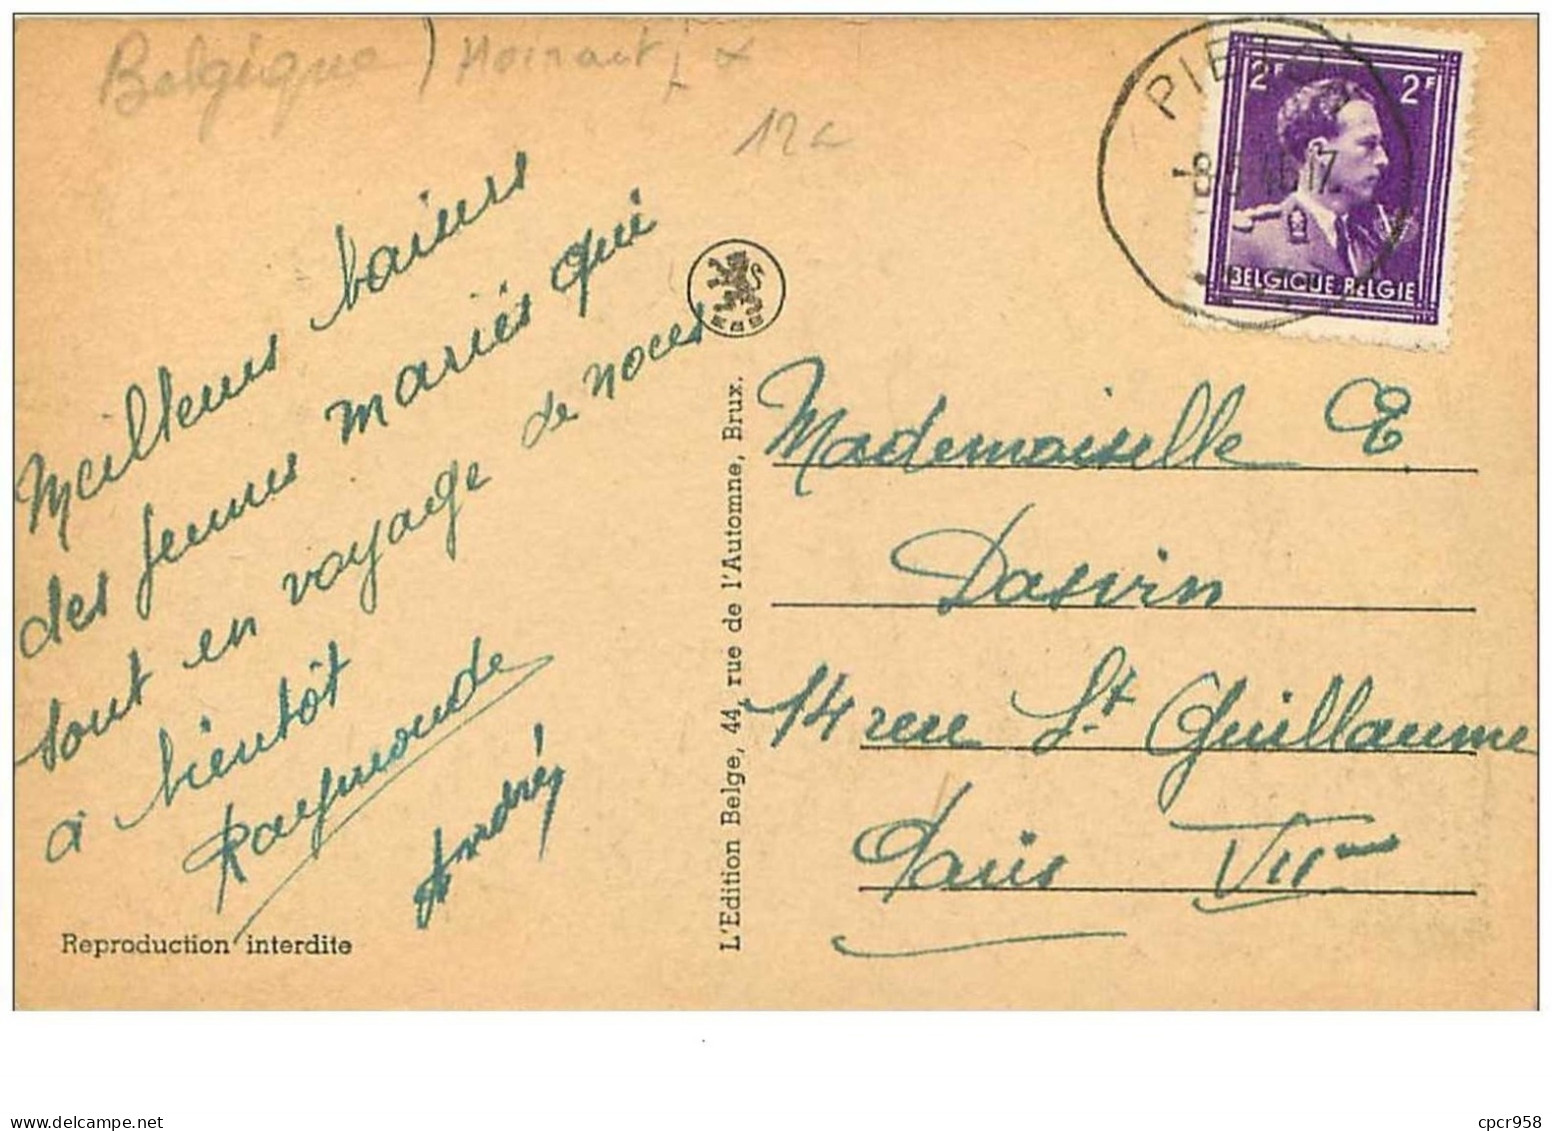 Belgique) Hainaut
12
PIET
2F 2F
BELGIQUE BELGIE
Meilleurs baisers
des jeunes mariés qui
sont en voyage de noces
a bientôt
Raymonde
André
Reproduction interdite
L'Edition Belge, 44, rue de l'Automne, Brux.
Mademoiselle E.
Dasvin
14 rue St Guillaume
Paris VIIme
delcampe.net
cpcr958